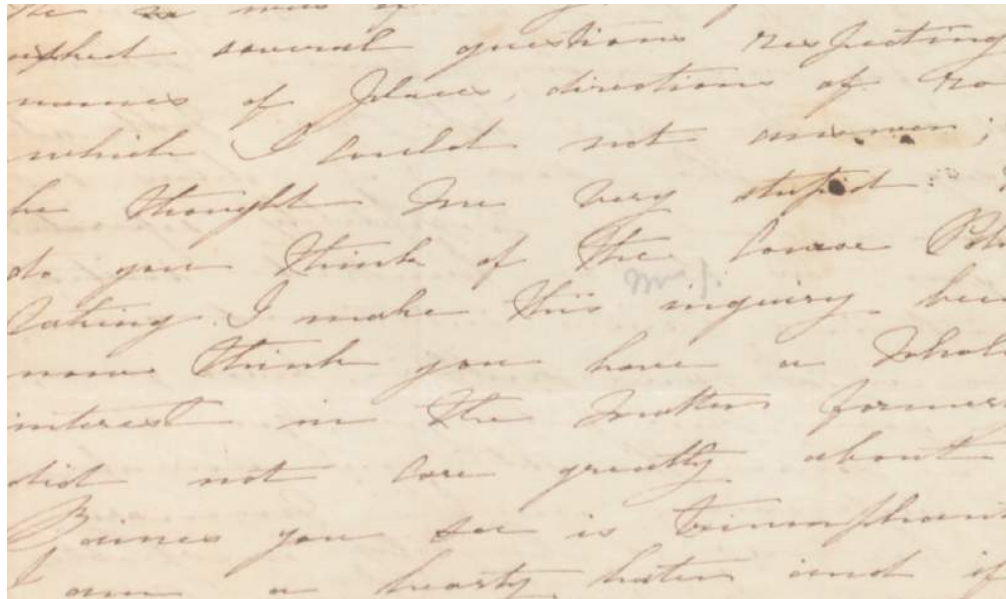 asked several questions respecting
names of places, directions of ro
which I could not answer;
he thought me very stupid
do you think of the course
Mr J.
taking. I make this inquiry bec
now think you have a
interest in the matter former
did not care greatly about
you see is triumphant
I am a hearty hater and if